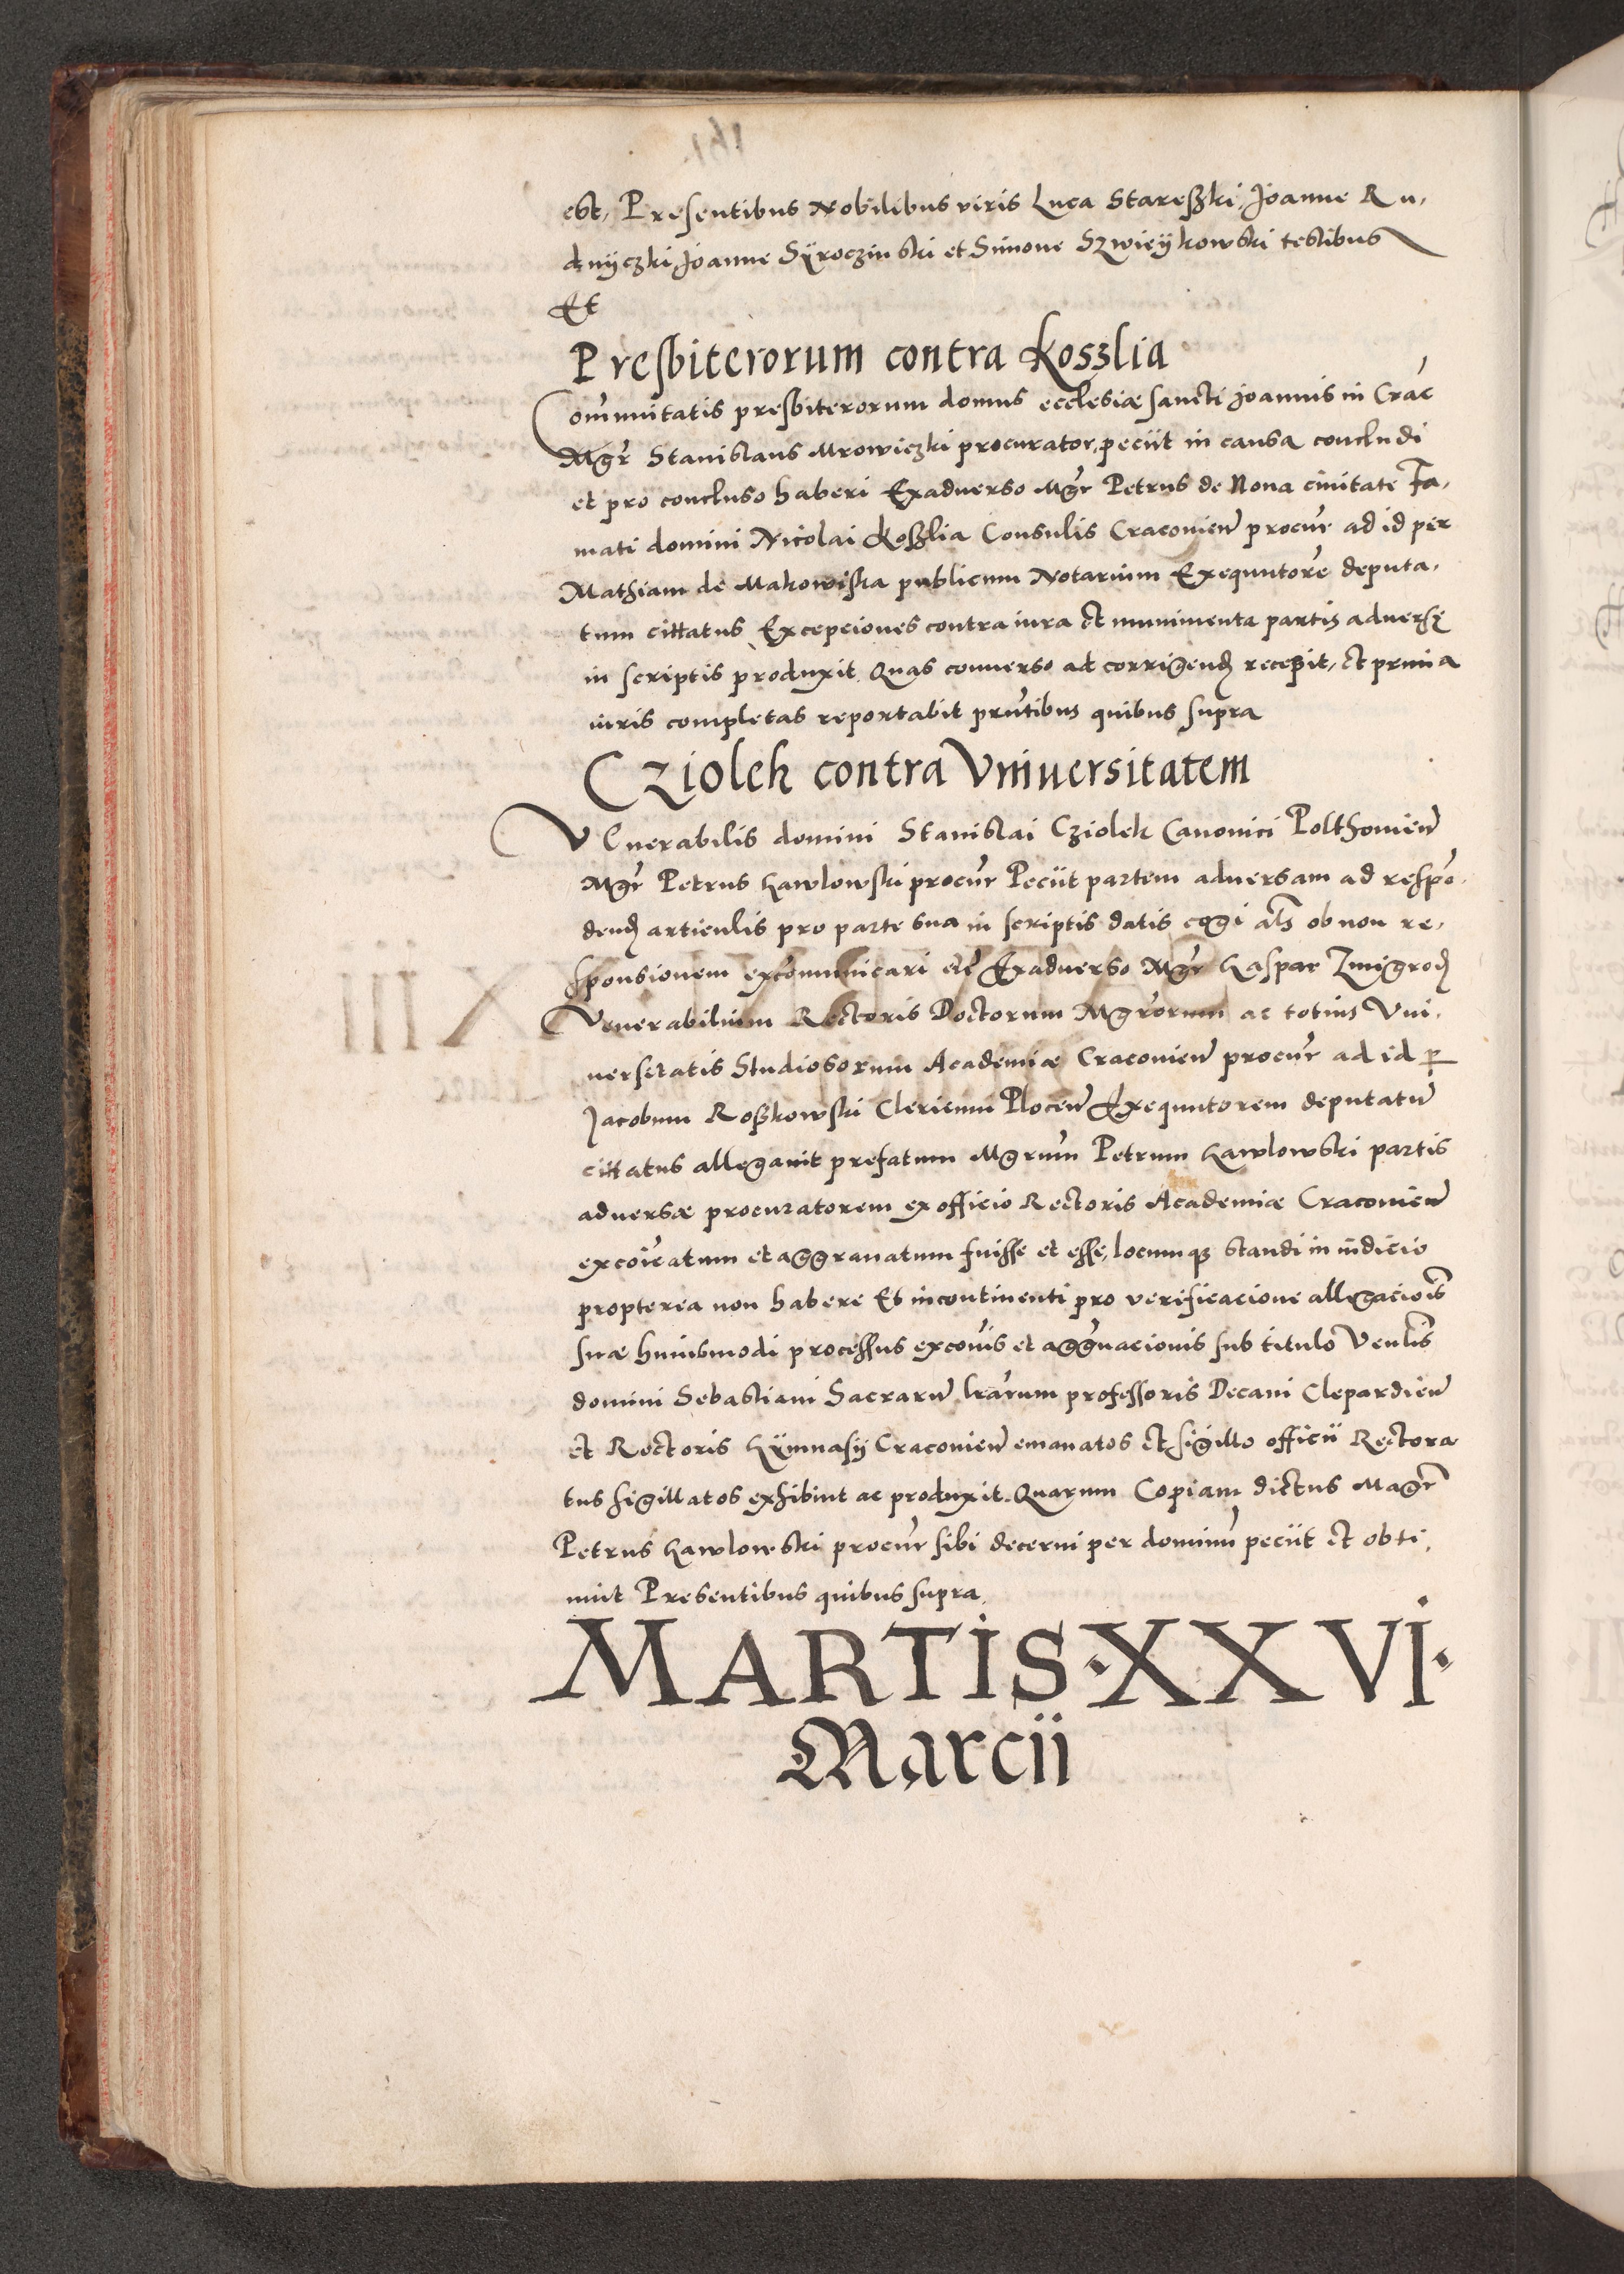 est, Presentibus Nobilibus viris Luca Stareszki, Joanne Ru,
dnyczki, Joanne Syroczinski et Simone Szwieykowski testibus
Et
Presbiterorum contra Koszlia
Com̃unitatis presbiterorum domus ecclesiæ sancti Joannis in Crac̃
Mgr̃ Stanislaus Mrowiczki procurator, peciit in causa concludi
et pro concluso haberi Exaduerso Mgr̃ Petrus de Noua ciuitate Fa,
mati domini Nicolai Koszlia Consulis Cracovien̄ procur̃ ad id per
Mathiam de Makowiska publicum Notarium Exequutorē deputa,
tum cittatus Excepciones contra iura et munimenta partis aduersę
in scriptis produxit. Quas conuerso ad corrigend̄ recepit, et prima
iuris completas reportabit prn̄tibus quibus supra
Cziolek contra Vniuersitatem
Venerabilis domini Stanislai Cziolek Canonici Polthouien̄
Mgr̃ Petrus Gawlowski procur̃ Peciit partem aduersam ad respō,
dend̄ articulis pro parte sua in scriptis datis cogi al̃s ob non re,
sponsionem excom̃unicari etc̃ Exaduerso Mgr̃ Gaspar Zmigrod̄
Venerabilium Rectoris Doctorum Mgr̃orum ac totius Vni,
uersitatis Studiosorum Academiæ Cracouien̄ procur̃ ad id ꝑ
Jacobum Roszkowski Clericum Plocen̄ Exequutorem deputatū
cittatus allegauit prefatum Mgr̃um Petrum Gawlowski partis
aduersæ procuratorem ex officio Rectoris Academiæ Cracouien̄
excoīcatum et aggrauatum fuisse et esse, locumqꝫ standi in iudicio
propterea non habere Et incontinenti pro verificacione allegaciōis
suæ huiusmodi processus excoīis et aggr̃uacionis sub titulo Venl̃is
domini Sebastiani Sacrarū lr̃arum professoris Decani Clepardien̄
et Rectoris Gymnasij Cracouien̄ emanatos et sigillo officii Rectora
tus sigillatos exhibuit ac produxit. Quarum Copiam dictus Magr̃
Petrus Gawlowski procur̃ sibi decerni per dominū peciit et obti,
nuit Presentibus quibus supra.
MARTIS·XXVI·
Marcii